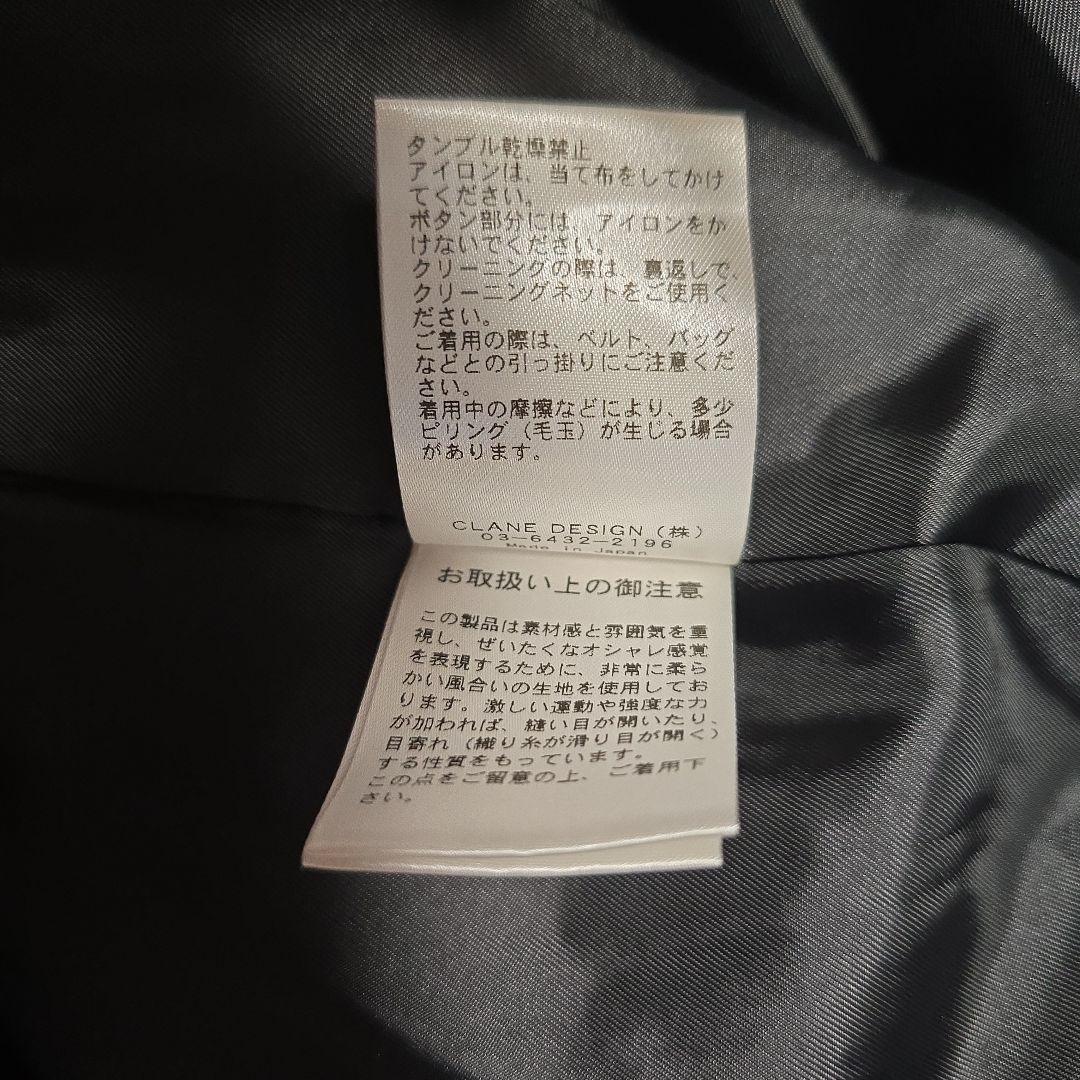 タンブル乾燥禁止
アイロンは、当て布をしてかけ
てください。
ボタン部分には、アイロンをか
けないでください。
クリーニングの際は、裏返しで、
クリーニングネットをご使用く
ださい。
ご着用の際は、ベルト、バッグ
などとの引っ掛りにご注意くだ
さい。
着用中の摩擦などにより、多少
ピリング（毛玉）が生じる場合
があります。
CLANE DESIGN（株）
03-6432-2196
Made in Japan
お取扱い上の御注意
この製品は素材感と雰囲気を重
視し、ぜいたくなオシャレ感覚
を表現するために、非常に柔ら
かい風合いの生地を使用してお
ります。激しい運動や強度な力
が加われば、縫い目が開いたり、
目寄れ（織り糸が滑り目が開く）
する性質をもっています。
この点をご留意の上、ご着用下
さい。